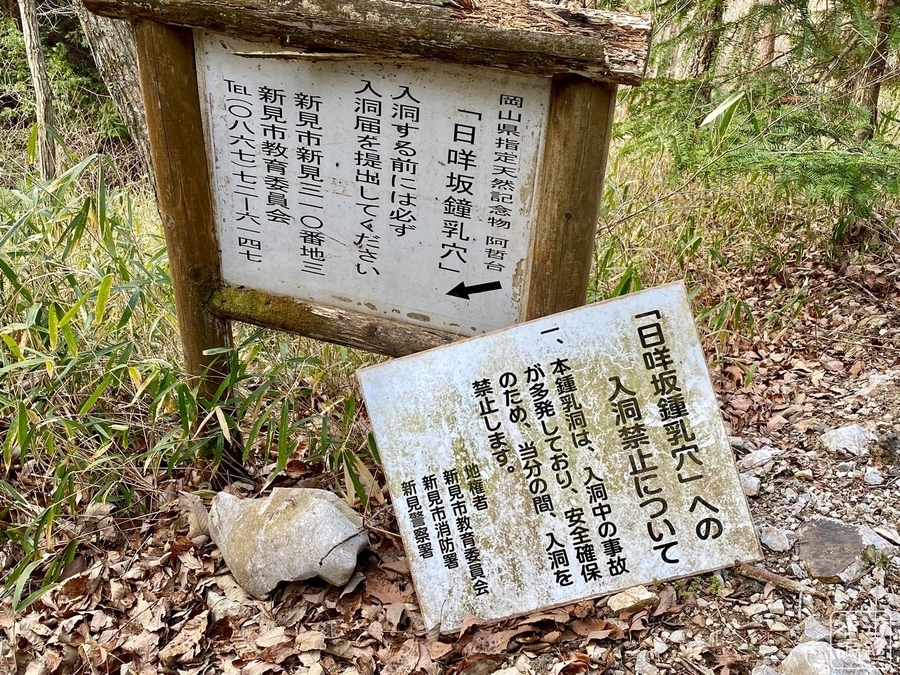 岡山県指定天然記念物 阿哲台
「日咩坂鐘乳穴」
入洞する前には必ず
入洞届を提出してください
新見市新見三一〇番地三
新見市教育委員会
TEL(〇八六七)七二—六一四七
「日咩坂鍾乳穴」への
入洞禁止について
一、本鍾乳洞は、入洞中の事故
が多発しており、安全確保
のため、当分の間、入洞を
禁止します。
地権者
新見市教育委員会
新見市消防署
新見警察署